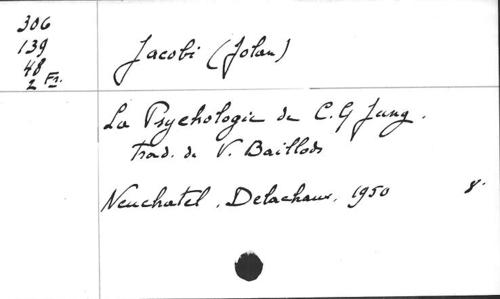 306
139
48
2 Fr.
Jacobi (Jolan)
La Psychologie de C.G Jung.
trad. de V. Baillods
Neuchatel, Delachaux, 1950 8°